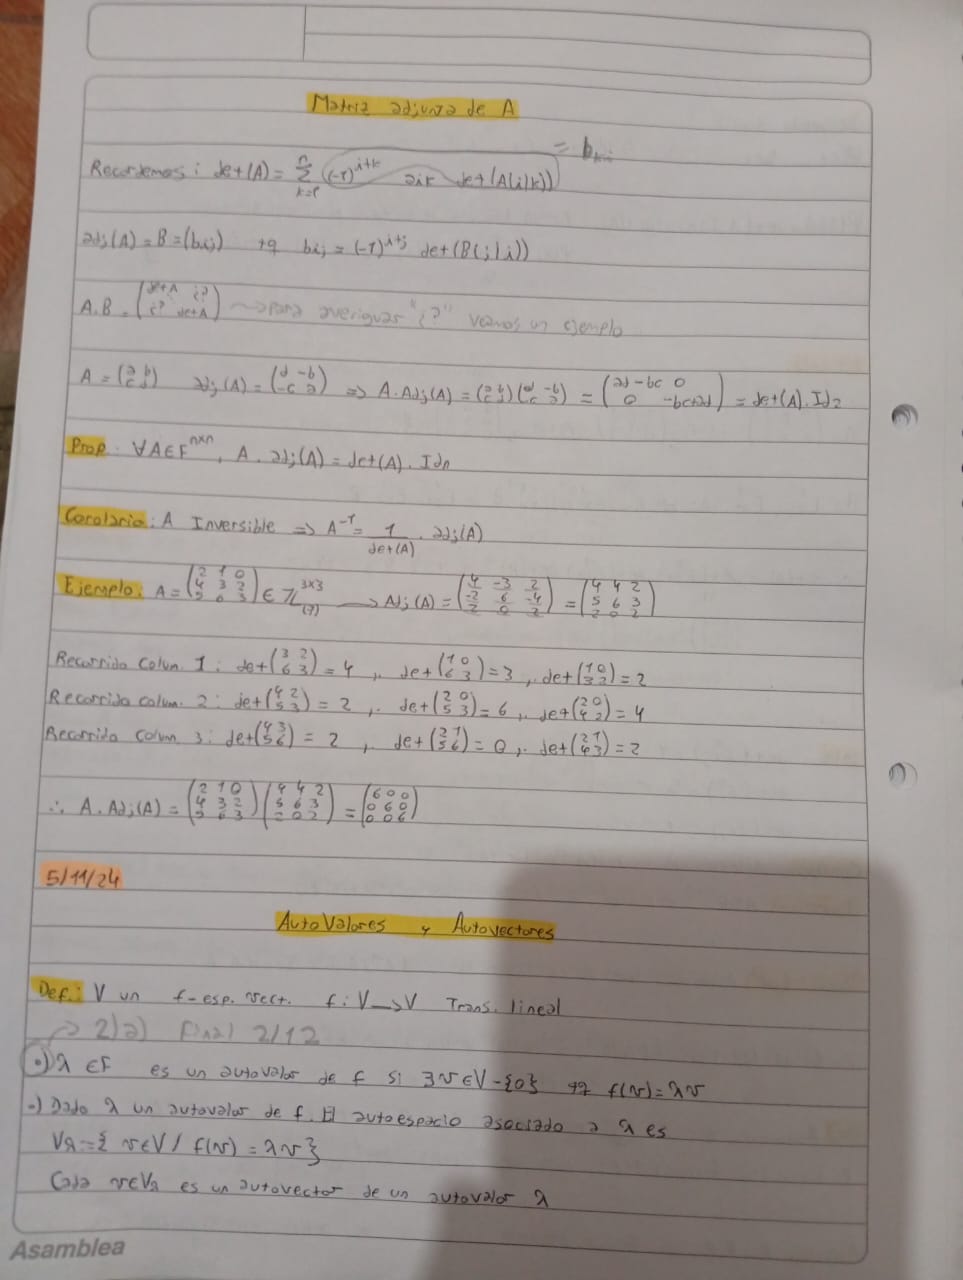 Matriz adjunta de A
= bki
Recordemos: det(A) = n Σ k=1 (-1)^{i+k} aik det(A(i|k))
adj(A) = B = (bij) tq bij = (-1)^{i+j} det(B(j|i))
A.B = (det A ¿? / ¿? det A) ~> para averiguar "¿?" veamos un ejemplo
A = (a b / c d) adj(A) = (d -b / -c a) => A.Adj(A) = (a b / c d)(d -b / -c a) = (ad-bc 0 / 0 -bc+ad) = det(A). Id2
Prop. ∀A∈F^{nxn}, A. adj(A) = det(A). Idn
Corolario: A Inversible => A^{-1} = 1/det(A) . adj(A)
Ejemplo: A = (2 1 0 / 4 3 2 / 5 6 3) ∈ Z_{(7)}^{3x3} —> Adj(A) = (4 -3 2 / -2 6 -4 / 2 0 2) = (4 4 2 / 5 6 3 / 2 0 2)
Recorrido Colum. 1: det(3 2 / 6 3) = 4, det(1 0 / 6 3) = 3, det(1 0 / 3 2) = 2
Recorrido colum. 2: det(4 2 / 5 3) = 2, det(2 0 / 5 3) = 6, det(2 0 / 4 2) = 4
Recorrido Colum 3: det(4 3 / 5 6) = 2, det(2 1 / 5 6) = 0, det(2 1 / 4 3) = 2
∴ A. Adj(A) = (2 1 0 / 4 3 2 / 5 6 3)(4 4 2 / 5 6 3 / 2 0 2) = (6 0 0 / 0 6 0 / 0 0 6)
5/11/24
AutoValores y Autovectores
Def: V un f-esp. vect. f: V —> V Trans. lineal
-> 2)a) Final 2/12
•) λ ∈ F es un autovalor de f si ∃ v ∈ V - {0} tq f(v) = λv
•) Dado λ un autovalor de f. El autoespacio asociado a λ es
Vλ = { v∈V / f(v) = λv }
Cada v∈Vλ es un autovector de un autovalor λ
Asamblea